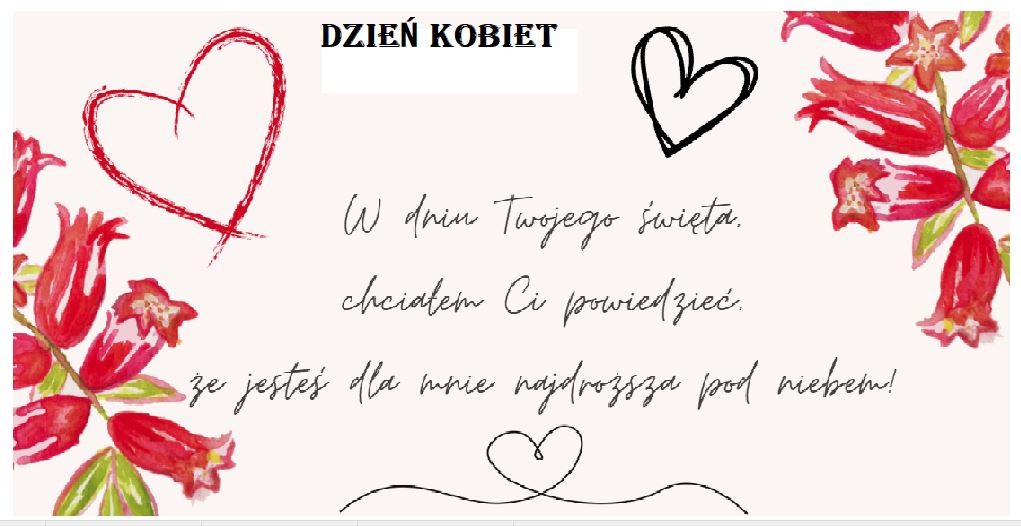 DZIEŃ KOBIET
W dniu Twojego święta,
chciałem Ci powiedzieć,
że jesteś dla mnie najdroższa pod niebem!